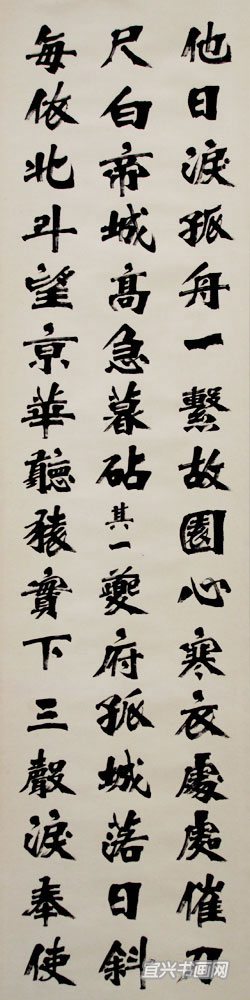 他日淚孤舟一繫故園心寒衣處處催刀
尺白帝城高急暮砧其一夔府孤城落日斜
每依北斗望京華聽猿實下三聲淚奉使
宜兴书画网